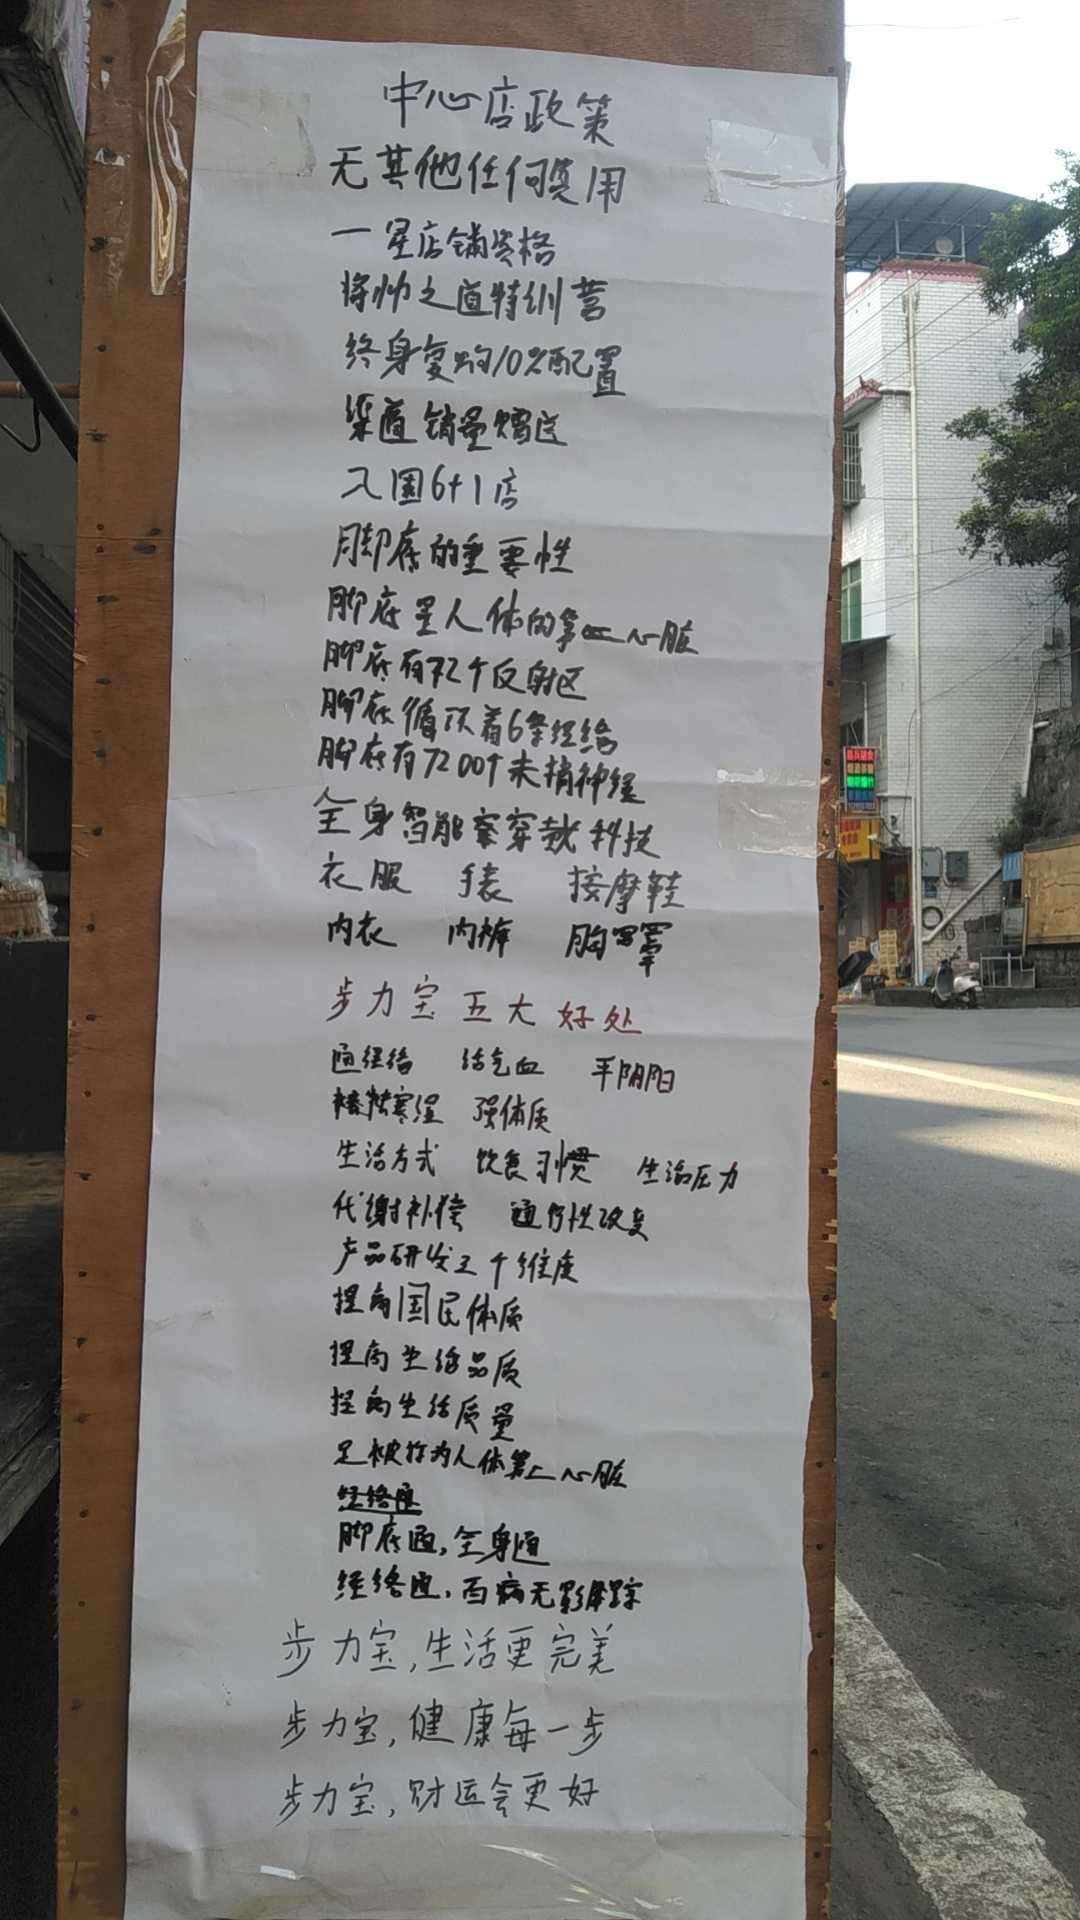 中心店政策
无其他任何费用
一星店铺资格
将帅之道特训营
终身复购10%配置
渠道销量赠送
入围6+1店
脚底的重要性
脚底是人体的第二心脏
脚底有72个反射区
脚底循环着6条经络
脚底有7200个末梢神经
全身智能穿戴科技
衣服 手表 按摩鞋
内衣 内裤 胸罩
步力宝五大好处
通经络 活气血 平阴阳
祛寒湿 强体质
生活方式 饮食习惯 生活压力
代谢补偿 通行性改变
产品研发三个维度
提高国民体质
提高生活品质
提高生活质量
足被称为人体第二心脏
脚底通,全身通
经络通,百病无影踪
步力宝,生活更完美
步力宝,健康每一步
步力宝,财运会更好